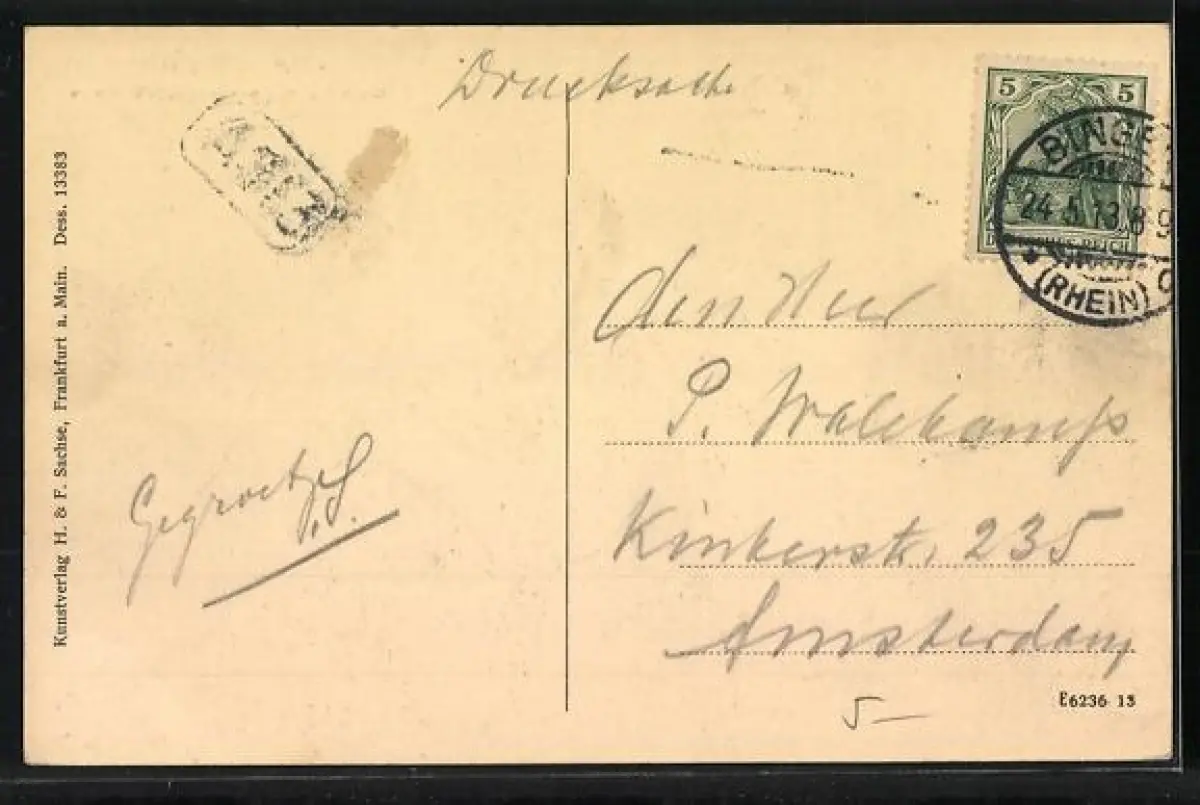 Drucksache
5 5
BINGE
24.5.13.8-9
(RHEIN)
REICH
den Heer
P. Walekamp
Kinkerstr. 235
Amsterdam
Gegroet
E6236 13
5 –
Kunstverlag H. & F. Sachse, Frankfurt a. Main. Dess. 13383